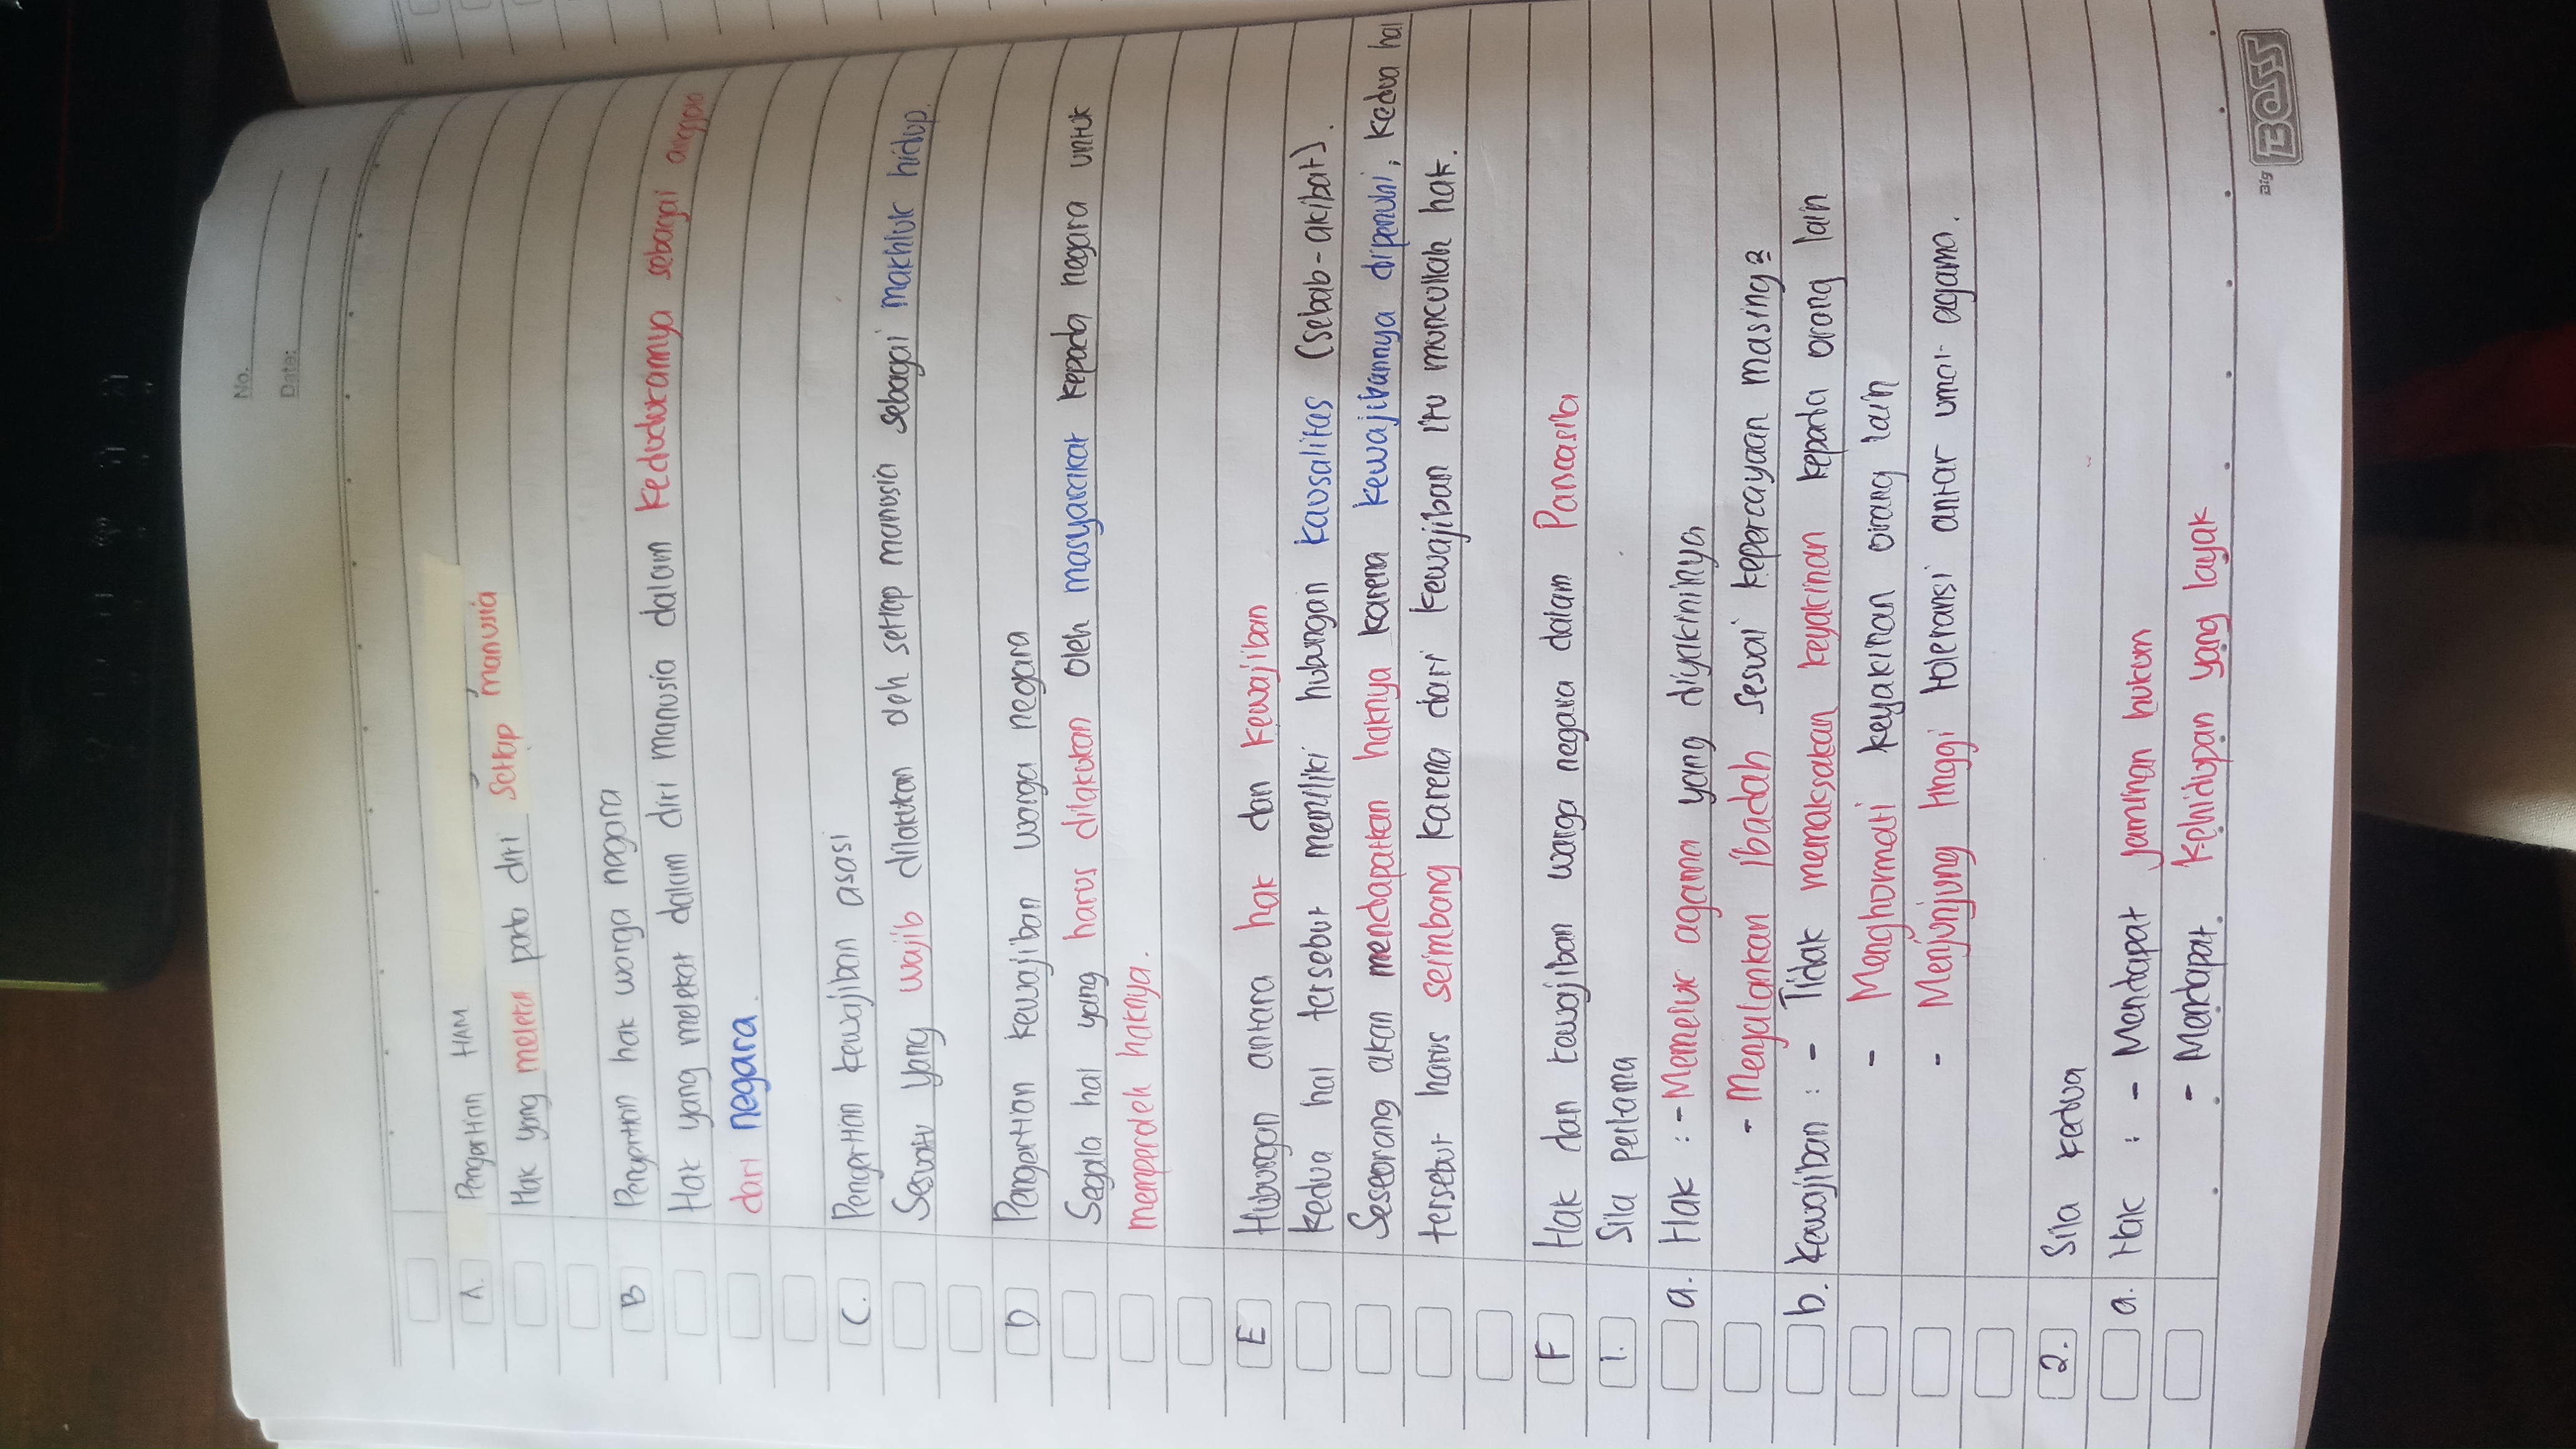 No.
Date:
A. Pengertian HAM
Hak yang melekat pada diri setiap manusia
B Pengertian hak warga negara
Hak yang melekat dalam diri manusia dalam kedudukannya sebagai anggota
dari negara.
C. Pengertian kewajiban asasi
Sesuatu yang wajib dilakukan oleh setiap manusia sebagai makhluk hidup.
D Pengertian kewajiban warga negara
Segala hal yang harus dilakukan oleh masyarakat kepada negara untuk
memperoleh haknya.
E Hubungan antara hak dan kewajiban
kedua hal tersebut memiliki hubungan kausalitas (sebab-akibat).
Seseorang akan mendapatkan haknya karena kewajibannya dipenuhi, kedua hal
tersebut harus seimbang karena dari kewajiban itu muncullah hak.
F Hak dan kewajiban warga negara dalam Pancasila
1. Sila pertama
a. Hak : - Memeluk agama yang diyakininya
- Menjalankan ibadah sesuai kepercayaan masing2
b. Kewajiban : - Tidak memaksakan keyakinan kepada orang lain
- Menghormati keyakinan orang lain
- Menjunjung tinggi toleransi antar umat agama.
2. Sila kedua
a. Hak : - Mendapat jaminan hukum
- Mendapat kehidupan yang layak
Big BOSS